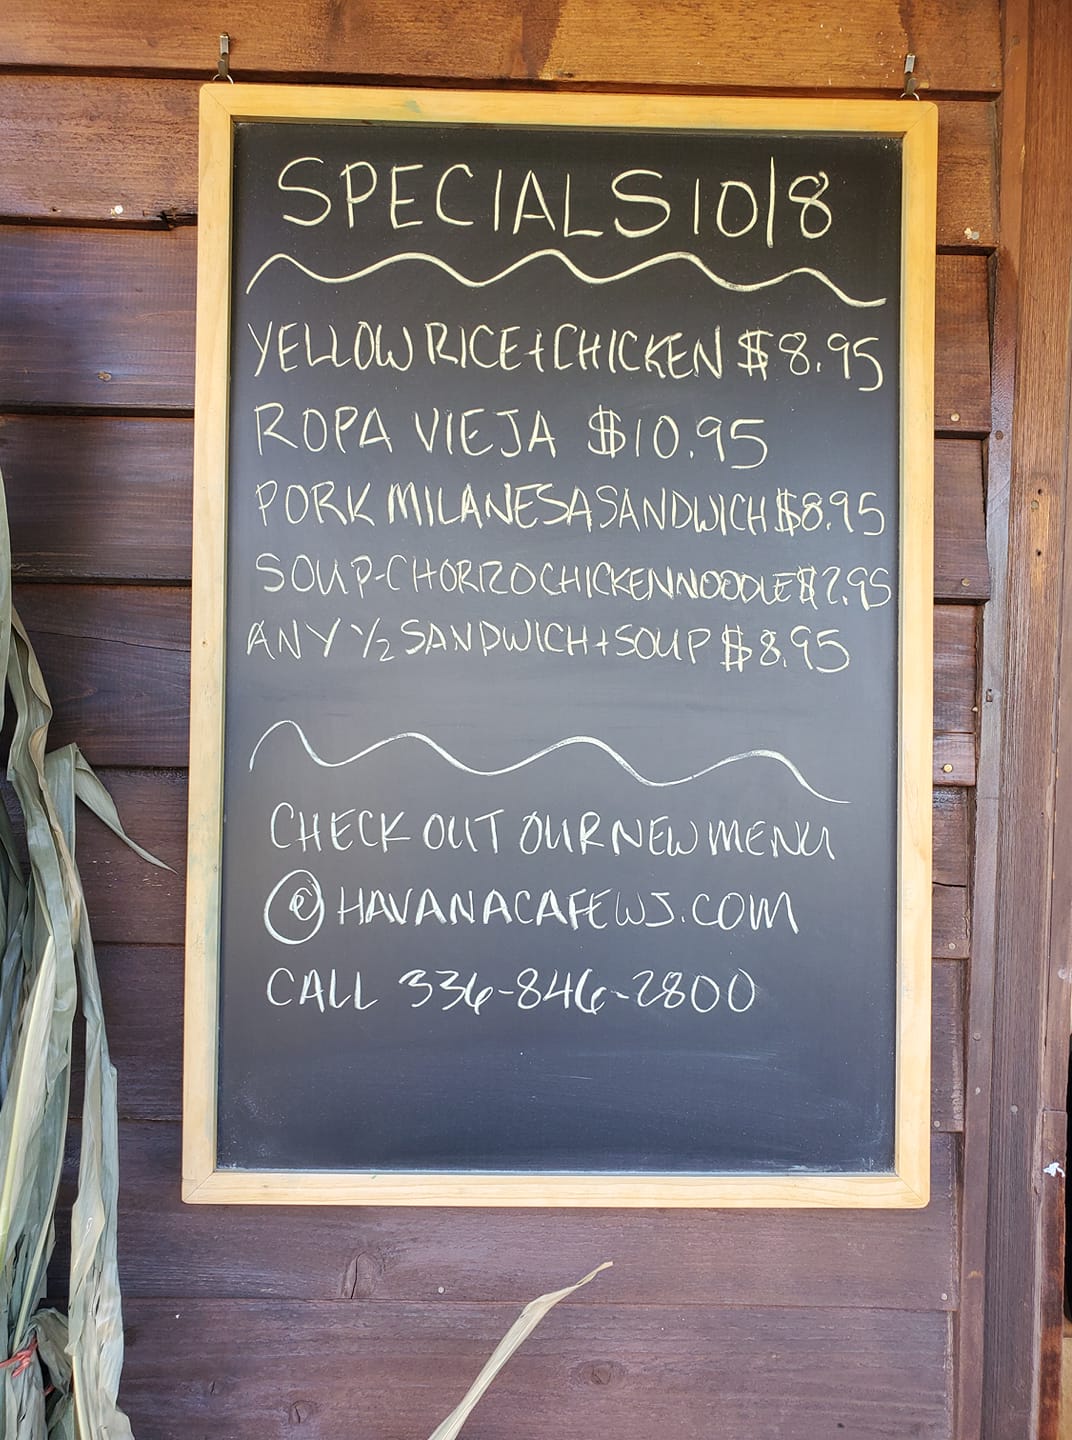 SPECIALS 10/8
YELLOW RICE + CHICKEN $8.95
ROPA VIEJA $10.95
PORK MILANESA SANDWICH $8.95
SOUP-CHORIZO CHICKEN NOODLE $2.95
ANY 1/2 SANDWICH + SOUP $8.95
CHECK OUT OUR NEW MENU
@ HAVANACAFEWJ.COM
CALL 336-846-2800